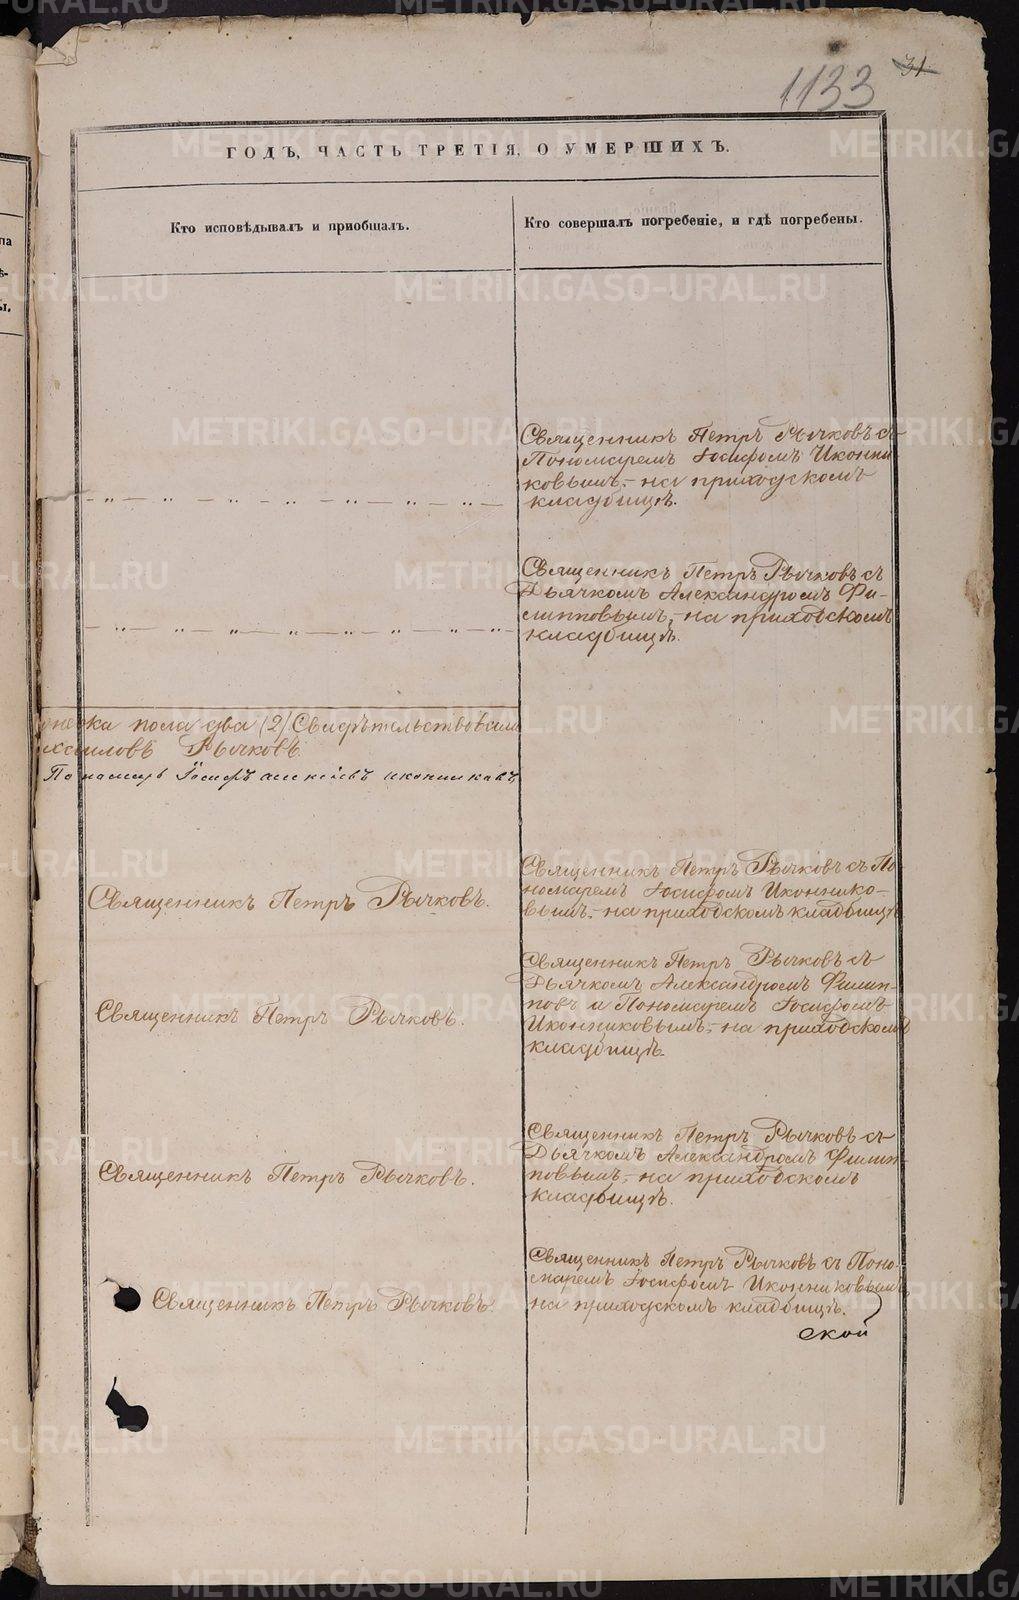 1133
31
ГОДЪ, ЧАСТЬ ТРЕТІЯ, О УМЕРШИХЪ.
Кто исповѣдывалъ и приобщалъ.
Кто совершалъ погребеніе, и гдѣ погребены.
Священникъ Петръ Рычковъ съ
Пономаремъ Іосифомъ Иконни
ковымъ,- на приходскомъ
кладбищѣ.
Священникъ Петръ Рычковъ съ
Дьячкомъ Александромъ Фи-
липповымъ,- на приходскомъ
кладбищѣ.
пола два (2) Свидѣтельствовали
Рычковъ.
Пономарь Іосифъ Алексѣевъ Иконниковъ
Священникъ Петръ Рычковъ.
Священникъ Петръ Рычковъ съ По-
номаремъ Іосифомъ Иконнико-
вымъ,- на приходскомъ кладбищѣ
Священникъ Петръ Рычковъ.
Священникъ Петръ Рычковъ съ
Дьячкомъ Александромъ Филип-
повъ и Пономаремъ Іосифомъ
Иконниковымъ,- на приходскомъ
кладбищѣ.
Священникъ Петръ Рычковъ.
Священникъ Петръ Рычковъ съ
Дьячкомъ Александромъ Филип-
повымъ,- на приходскомъ
кладбищѣ.
Священникъ Петръ Рычковъ.
Священникъ Петръ Рычковъ съ Поно-
маремъ Іосифомъ Иконниковымъ
на приходскомъ кладбищѣ.
ской
METRIKI.GASO-URAL.RU